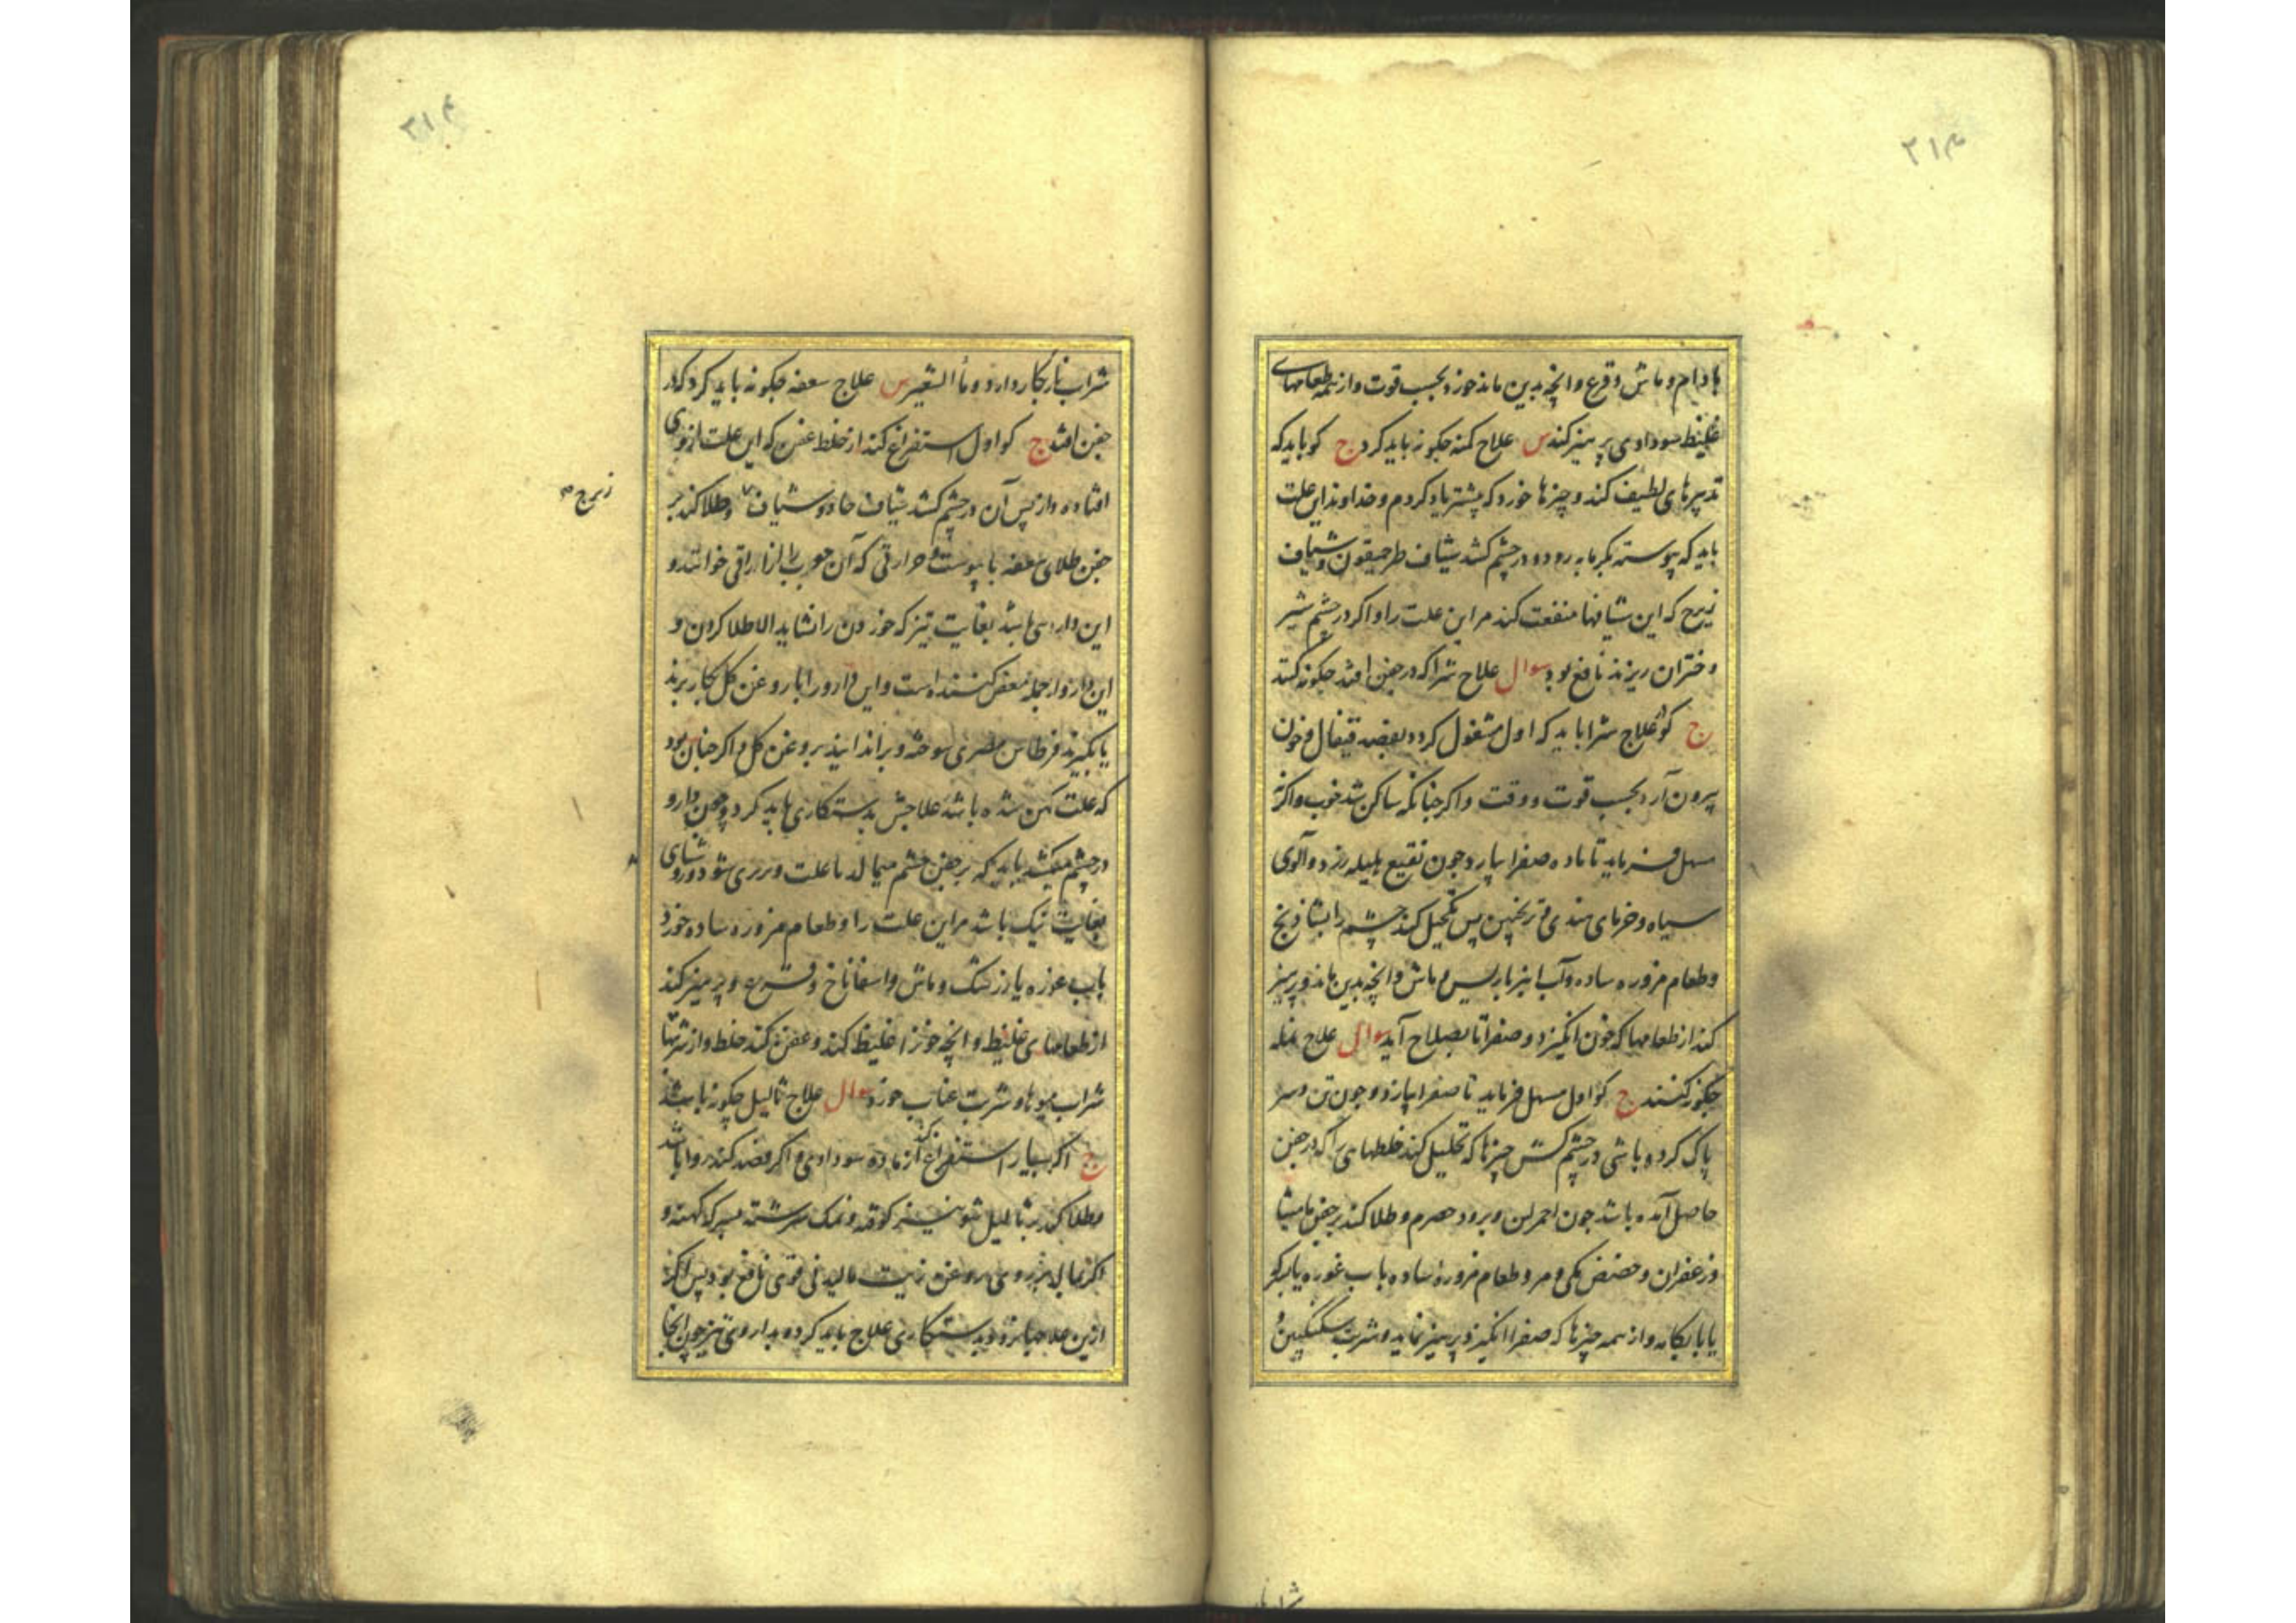 ۳۱۴
بادام و ماش و قرع و انچه بدین ماند خورد بحسب قوت و از همه طعامهای
غلیظ سوداوی پرهیز کند س علاج کمنه چکونه باید کرد ج کو باید که
تدبیرهای لطیف کند و چیزها خورد که پیشتر یاد کردم و خداوند این علت
باید که پیوسته بکرمابه رود و در چشم کشد شیاف طرخمیقون و شیاف
زیرج که این شیافها منفعت کند مر این علت را و اکر در چشم شیر
دختران ریزند نافع بود سوال علاج شرا که در جفن افتد چکونه کنند
ج کو علاج شرا باید که اول مشغول کردد بفصد قیفال و خون
بیرون آرد بحسب قوت و وقت و اکر چنانکه ساکن شد خوب و اکر نه
مسهل فرماید تا ماده صفرا بیارد چون نقیع هلیله زرد و آلوی
سیاه و خرمای هندی و ترنجبین پس تکحیل کند چشم را
و طعام مزوره ساده و آب انبرباریس و ماش و انچه بدین ماند و پرهیز
کند از طعامها که خون انکیزد و صفرا تا بصلاح آید سوال علاج نمله
چکونه کنند ج کو اول مسهل فرماید تا صفرا بیارد و چون تن و سر
پاک کرده باشی در چشم کش چیزها که تحلیل کند خلطهای را که در جفن
حاصل آمده باشد چون احمر لین و برود حصرم و طلا کند بر جفن مامیثا
و زعفران و حضض مکی و مر و طعام مزوره ساده باب غوره یا
یا با و از همه چیزها که صفرا انکیزد پرهیز نماید و شربت سکنکبین و
۳۱۴
شراب نار بکار دارد و ماء الشعیر س علاج سعفه چکونه باید کرد که در
جفن افتد ج کو اول استفراغ کند از خلط عفن که این علت از وی
افتاده و از پس آن در چشم کشد شیاف حاد و شیاف و طلا کند بر
زیرج
جفن طلای سعفه با پوست و حرارتی که آن را خوانند و
این داروی باشد بغایت تیز که خوردن را نشاید الا طلا کردن و
این دارو از جمله معفن کننده است و این دارو را با روغن کل بکار برند
یا بکیرند قرطاس مصری سوخته و بر اندایند بروغن کل و اکر چنان بود
که علت کهن شده باشد علاجش بدستکاری باید کرد و چون دارو
در چشم میکشد باید که بر جفن چشم میمالد تا علت و
بغایت نیک باشد مر این علت را و طعام مزوره ساده خورد
باب غوره یا زرشک و ماش و اسفاناخ و قرع و پرهیز کند
از طعامهای غلیظ و انچه خون را غلیظ کند و عفن کند خلط و از شربتها
شراب میوها و شربت عناب خورد سوال علاج ثالیل چکونه باشد
ج اکر بسیار استفراغ کند از ماده سوداوی و اکر فصد کند روا باشد
و طلا کن بر ثالیل شونیز کوفته و نمک سرشته بسرکه کهنه و
اکر بمالد بر وی روغن زیت مالیدنی قوی نافع بود پس اکر
ازین علاجها نرود بدستکاری علاج باید کرد و بداروی تیز چون انجا